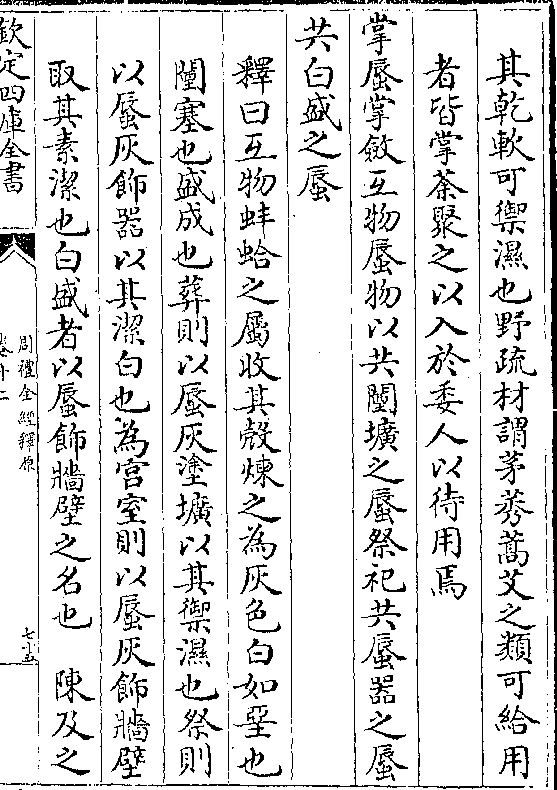 其乾軟可禦濕也野疏材謂茅莠蒿艾之類可給用
者皆掌荼聚之以入於委人以待用焉
掌蜃掌斂互物蜃物以共闉壙之蜃祭祀共蜃器之蜃
共白盛之蜃
釋曰互物蚌蛤之屬收其殻煉之為灰色白如堊也
闉塞也盛成也葬則以蜃灰塗壙以其禦濕也祭則
以蜃灰飾器以其潔白也為宫室則以蜃灰飾牆壁
取其素潔也白盛者以蜃飾牆壁之名也　陳及之
欽定四庫全書
周禮全經釋原
卷十二
七十五